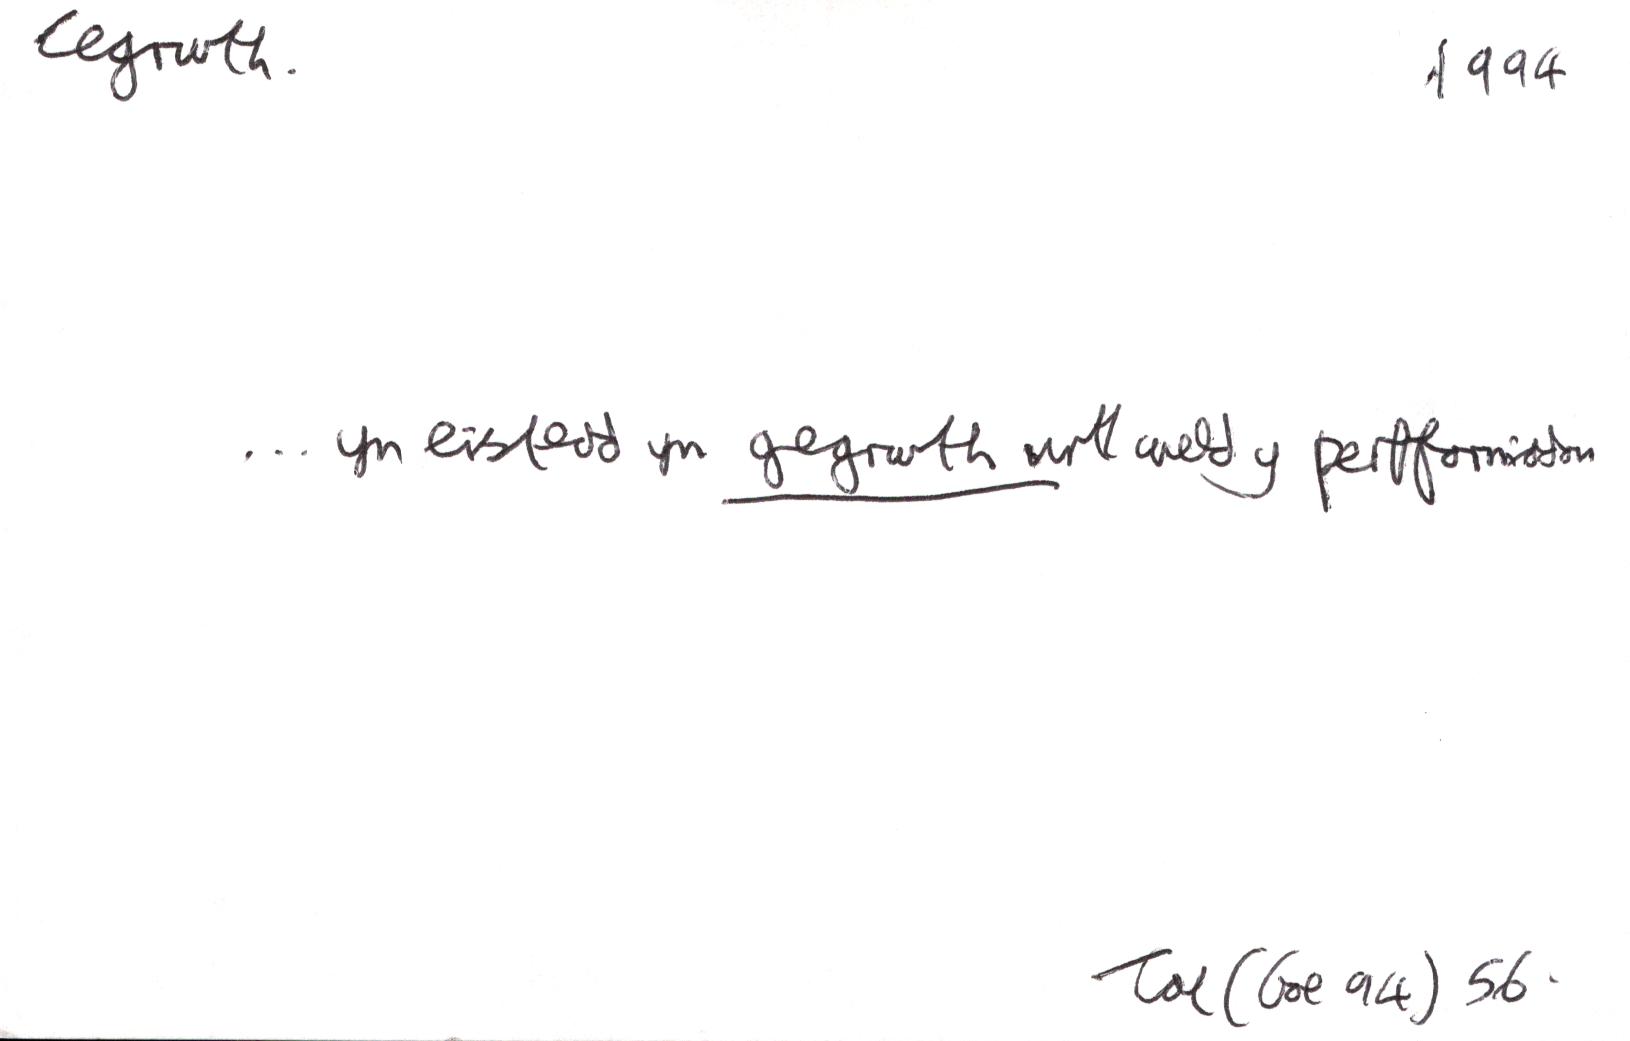 Cegrwth. 1994
... yn eistedd yn gegrwth wrth weld y perfformiadau
(Goe 94) 56.